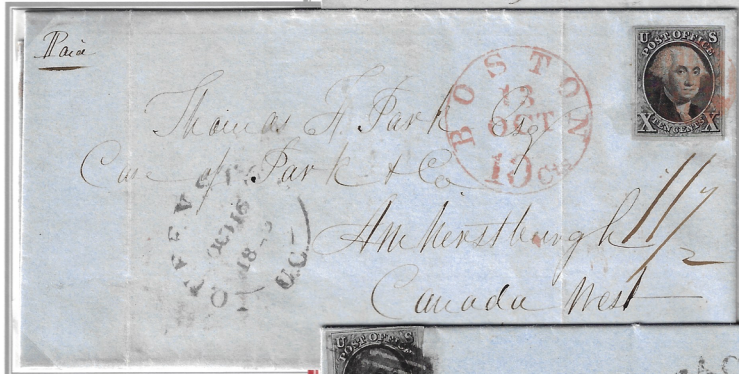 Paid
U S
POST OFFICE
X TEN CENTS X
BOSTON
13
OCT
10 Cts
Thomas F. Park Esq
Care of Park & Co
Amherstburgh
Canada West
11½
QUEENSTON
OCT 16
U.C.
U S
POST OFFICE